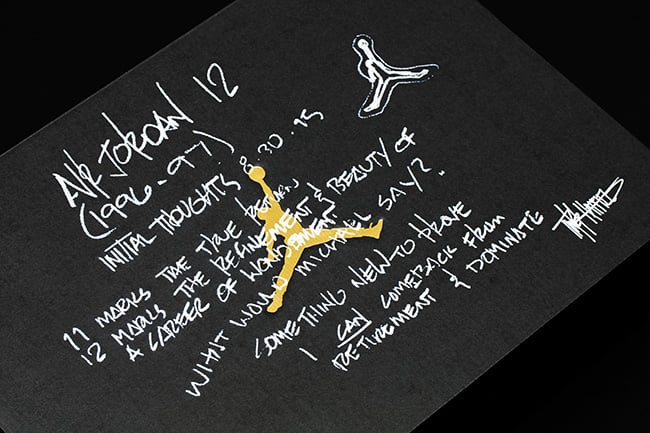 AIR JORDAN 12
(1996-97)
INITIAL THOUGHTS 8.30.15
11 MARKS THE TRUE RETURN
12 MARKS THE REFINEMENT & BEAUTY OF
A CAREER OF WONDERMENT
WHAT WOULD MICHAEL SAY?
SOMETHING NEW TO PROVE
I CAN COMEBACK FROM
RETIREMENT & DOMINATE